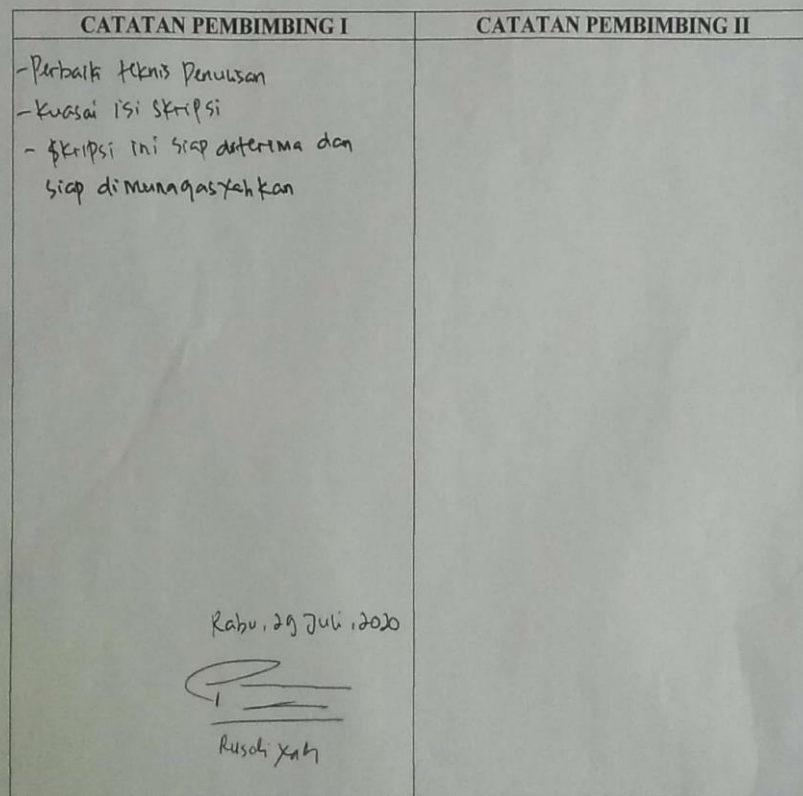 CATATAN PEMBIMBING I
CATATAN PEMBIMBING II
-Perbaik teknis Penulisan
-Kuasai isi skripsi
- Skripsi ini siap diterima dan
siap dimunaqasyahkan
Rabu, 29 Juli, 2020
Rusdiyah